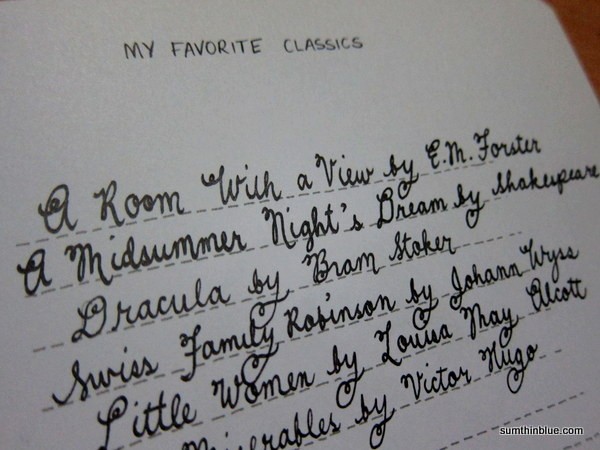 MY FAVORITE CLASSICS
A Room With a View by E.M. Forster
A Midsummer Night's Dream by Shakespeare
Dracula by Bram Stoker
Swiss Family Robinson by Johann Wyss
Little Women by Louisa May Alcott
Miserables by Victor Hugo
sumthinblue.com